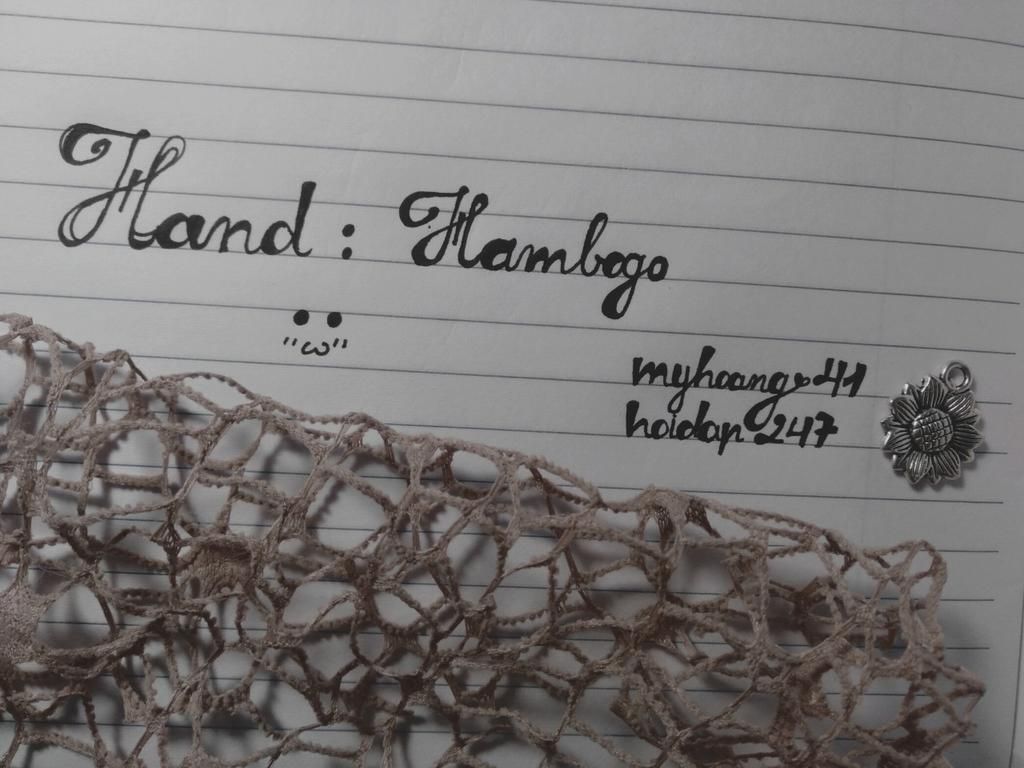 Hand : Hambogo
"ω"
myhoang241
hoidap247